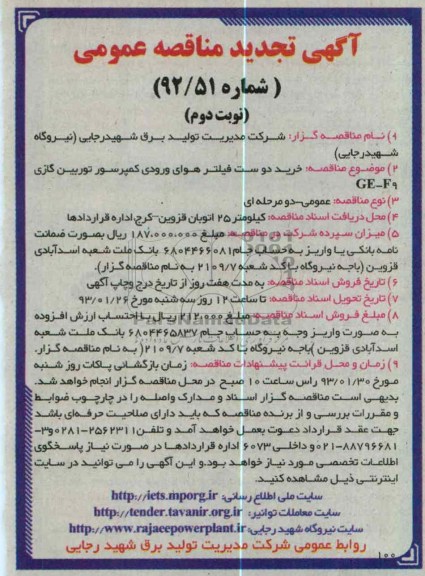 آگهی تجدید مناقصه عمومی
( شماره ۹۲/۵۱)
(نوبت دوم)
۱) نام مناقصه گزار: شرکت مدیریت تولید برق شهیدرجایی (نیروگاه
شهیدرجایی)
۲) موضوع مناقصه: خرید دو ست فیلتر هوای ورودی کمپرسور توربین گازی
GE-F۹
۳) نوع مناقصه: عمومی-دو مرحله ای
۴) محل دریافت اسناد مناقصه: کیلومتر ۲۵ اتوبان قزوین-کرج،اداره قراردادها
۵) میزان سپرده شرکت در مناقصه: مبلغ ۱۸۷،۰۰۰،۰۰۰ ریال بصورت ضمانت
نامه بانکی یا واریز به حساب جام ۶۸۰۴۴۶۶۰۸۱ بانک ملت شعبه اسدآبادی
قزوین (باجه نیروگاه با کد شعبه ۲۱۰۹/۷ به نام مناقصه گزار).
۶) تاریخ فروش اسناد مناقصه: به مدت هفت روز از تاریخ درج وچاپ آگهی
۷) تاریخ تحویل اسناد مناقصه: تا ساعت ۱۲ روز سه شنبه مورخ ۹۳/۰۱/۲۶
۸) مبلغ فروش اسناد مناقصه: مبلغ ۲۱۲،۰۰۰ ریال بااحتساب ارزش افزوده
به صورت واریز وجه به حساب جام ۶۸۰۴۴۶۵۸۳۷ بانک ملت شعبه
اسدآبادی قزوین )باجه نیروگاه با کد شعبه ۲۱۰۹/۷( به نام مناقصه گزار.
۹) زمان و محل قرائت پیشنهادات مناقصه: زمان بازگشائی پاکات روز شنبه
مورخ ۹۳/۰۱/۳۰ راس ساعت ۱۰ صبح در محل مناقصه گزار انجام خواهد شد.
بدیهی است مناقصه گزار اسناد و مدارک واصله را در چارچوب ضوابط
و مقررات بررسی و از برنده مناقصه که باید دارای صلاحیت حرفه‌ای باشد
جهت عقد قرارداد دعوت بعمل خواهد آمد و تلفن ۲۵۶۲۳۱۱-۰۲۸۱و۳-
۸۸۷۹۶۶۸۱-۰۲۱و داخلی ۶۰۷۳ اداره قراردادها در صورت نیاز پاسخگوی
اطلاعات تخصصی مورد نیاز خواهد بود.و این آگهی را می توانید در سایت
اینترنتی ذیل مشاهده کنید.
سایت ملی اطلاع رسانی: http://iets.mporg.ir
سایت معاملات توانیر: http://tender.tavanir.org.ir
سایت نیروگاه شهید رجایی: http://www.rajaeepowerplant.ir
روابط عمومی شرکت مدیریت تولید برق شهید رجایی
۱۰۰